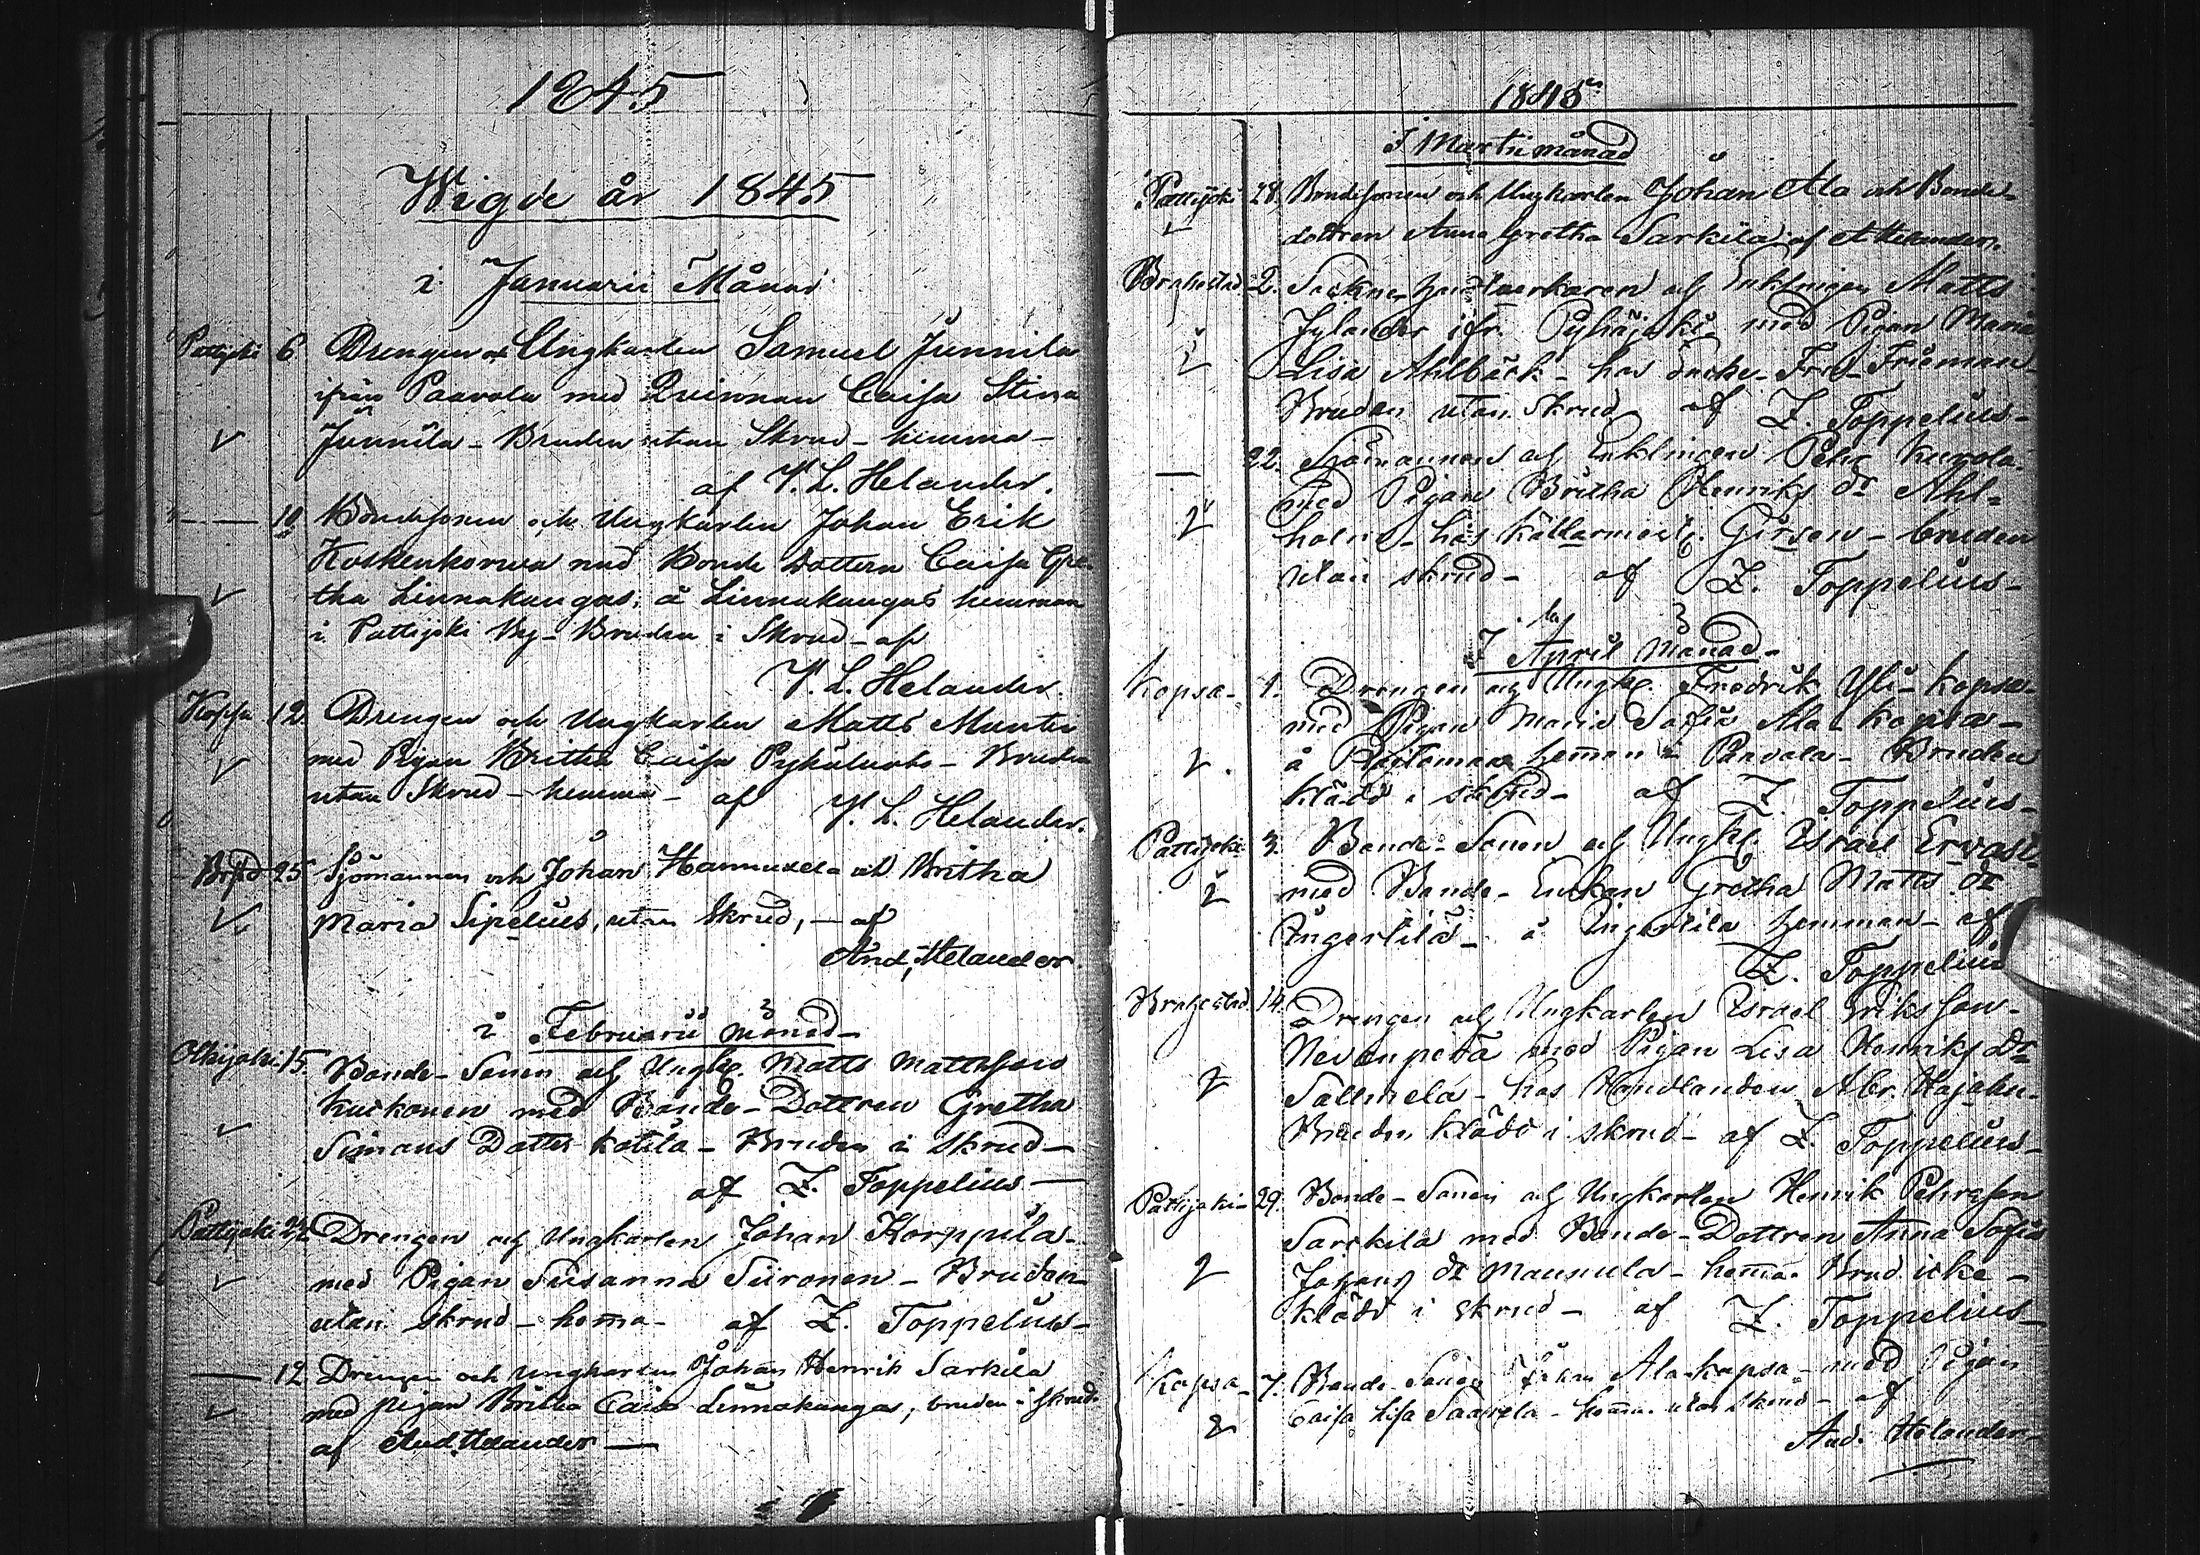 1845
Wigde år 1845
i Januarii Månad
Pattijoki 6 Drengen o Ungkarlen Samuel Junnila
ifrån Paavola med Qvinnan Caisa Stina
Junnila - Bruden utan Skrud - hemma -
af V. L. Helander.
— 10 Bondesonen och Ungkarlen Johan Erik
Koskenkorwa med Bonde Dottern Caisa Gre-
tha Linnakangas, å Linnakangas hemman
i Pattijoki By - Bruden i Skrud - af
V. L. Helander.
Kopsa 12 Drengen och Ungkarlen Matts
med Pigan Britha Caisa - Bruden
utan Skrud - hemma - af V. L. Helander.
Brstd 25 Sjömannen och Johan Hannuxela och Britha
Maria Sipelius, utan Skrud, - af
And. Helander
i Februarii månad -
Olkijoki 15. Bonde-Sonen och Ungk. Matts Mattsson
Kuckonen med Bonde-Dottren Gretha
Simons Dotter Kotila - Bruden i skrud -
af Z. Toppelius -
Pattijoki 22 Drengen och Ungkarlen Johan Korppila -
med Pigan Susanna Siironen - Bruden
utan skrud - hemma - af Z. Toppelius -
— 12 Drengen och ungkarlen Johan Henrik Sarkila
med pigan Britha Caisa Linnakangas, bruden i skrud
af And. Helander —
1845
I Martii månad
Pattijoki 28. Bondesonen och Ungkarlen Johan Ala och Bonde-
dottren Anna Gretha Sarkila af A Helander.
Brahestad 2. Sockne handtverkaren och Enklingen Matts
Jylander ifr. Pyhäjoki med Pigan Maria
Lisa Ahlbäck - hos Enke-Fru Frieman -
Bruden utan Skrud af Z. Toppelius -
— 22. Sjömannen och Enklingen Pehr Kurola
med Pigan Britha Henriks dr Ahl-
holm - hos Källarmest. Girsen - bruden
utan skrud - af Z. Toppelius -
I April Månad -
Kopsa - 1. Drengen och Ungk. Fredrik Yli-Kopsa -
med Pigan Maria Sofia Ala-Kopsa -
å hemman i Paavola - Bruden
klädd i skrud - af Z. Toppelius -
Pattijoki 3. Bonde-Sonen och Ungk. Israel Ervast -
med Bonde-Enkan Gretha Matts dr
Ångerlilä - å hemman - af
Z. Toppelius
Brahestad. 14. Drengen och Ungkarlen Israel Eriksson -
Nevenperä med Pigan Lisa Henriks dr
Sallmela - hos Handlanden Abr. -
Bruden klädd i skrud - af Z. Toppelius -
Pattijoki - 29. Bonde-Sonen och Ungkarlen Henrik Pehrsson
Sarkila med Bonde-Dottren Anna Sofia
Johans dr Maunula - hemma Brud icke -
klädd i skrud - af Z. Toppelius -
Kopsa - 7. Bonde Sonen Johan Ala-Kopsa - med Pigan
Caisa Lisa Saarela - hemma utan skrud - af
And. Helander -